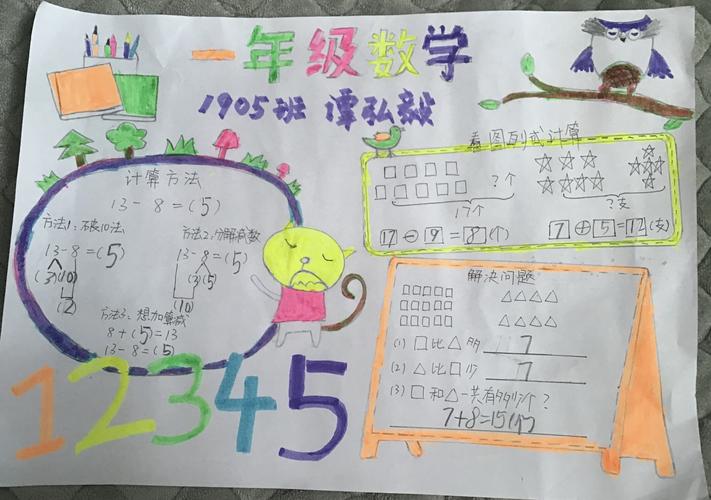 一年级数学
1905班 谭弘毅
计算方法
13-8=(5)
方法1:破10法
13-8=(5)
(3)(10)
(2)
方法2:分解减数
13-8=(5)
(3)(5)
(10)
方法3:想加算减
8+(5)=13
13-8=(5)
看图列式计算
?个
17个
17-9=8(个)
?支
7+5=12(支)
解决问题
(1) □比△多 7
(2) △比□少 7
(3) □和△一共有多少个?
7+8=15(个)
1 2 3 4 5